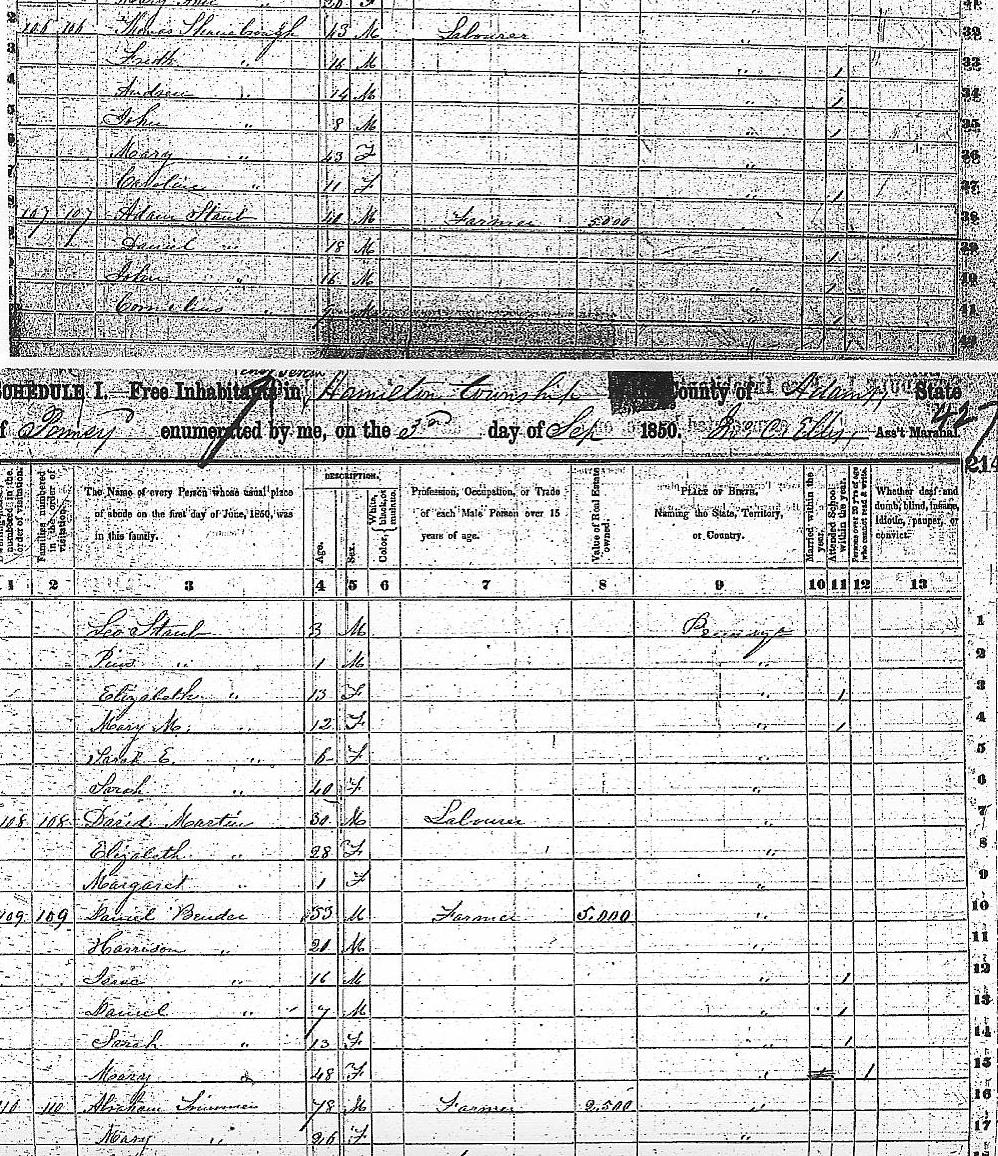 106 106 Thomas 43 M Labourer 32
Fredk " 16 M " 1 33
Andrew " 14 M " 1 34
John " 8 M " 1 35
Mary " 43 F " 36
Caroline " 11 F " 1 37
107 107 Adam Staub M Farmer 5000 38
Daniel " 18 M 1 39
John " 16 M 1 40
Cornelius " 7 M 1 41
SCHEDULE I.—Free Inhabitants in Hamilton township County of Adams State
of Pennsy enumerated by me, on the 3rd day of Sep 1850. Ass't Marshal.
427
214
DESCRIPTION.
numbered in the order of visitation.
Families numbered in the order of visitation.
The Name of every Person whose usual place of abode on the first day of June, 1850, was in this family.
Age.
Sex.
Color, { White, black, or mulatto.
Profession, Occupation, or Trade of each Male Person over 15 years of age.
Value of Real Estate owned.
PLACE OF BIRTH. Naming the State, Territory, or Country.
Married within the year.
Attended School within the year.
Persons over 20 y'rs of age who cannot read & write.
Whether deaf and dumb, blind, insane, idiotic, pauper, or convict.
1 2 3 4 5 6 7 8 9 10 11 12 13
Leo Staub 3 M 1
Pius " 1 M " 2
Elizabeth " 13 F " 1 3
Mary M. " 12 F " 1 4
Sarah E. " 6 F " 5
Sarah " 40 F " 6
108 108 David Martin 30 M Labourer " 7
Elizabeth " 28 F " 8
Margaret " 1 F " 9
109 109 Daniel Bender 53 M Farmer 5.000 " 10
Harrison " 21 M " 11
Isaac " 16 M " 1 12
Daniel " 7 M " 1 13
Sarah " 13 F 1 14
Mary " 48 F " 1 15
110 110 Abraham 78 M Farmer 2.500 " 16
Mary " 26 F " 17